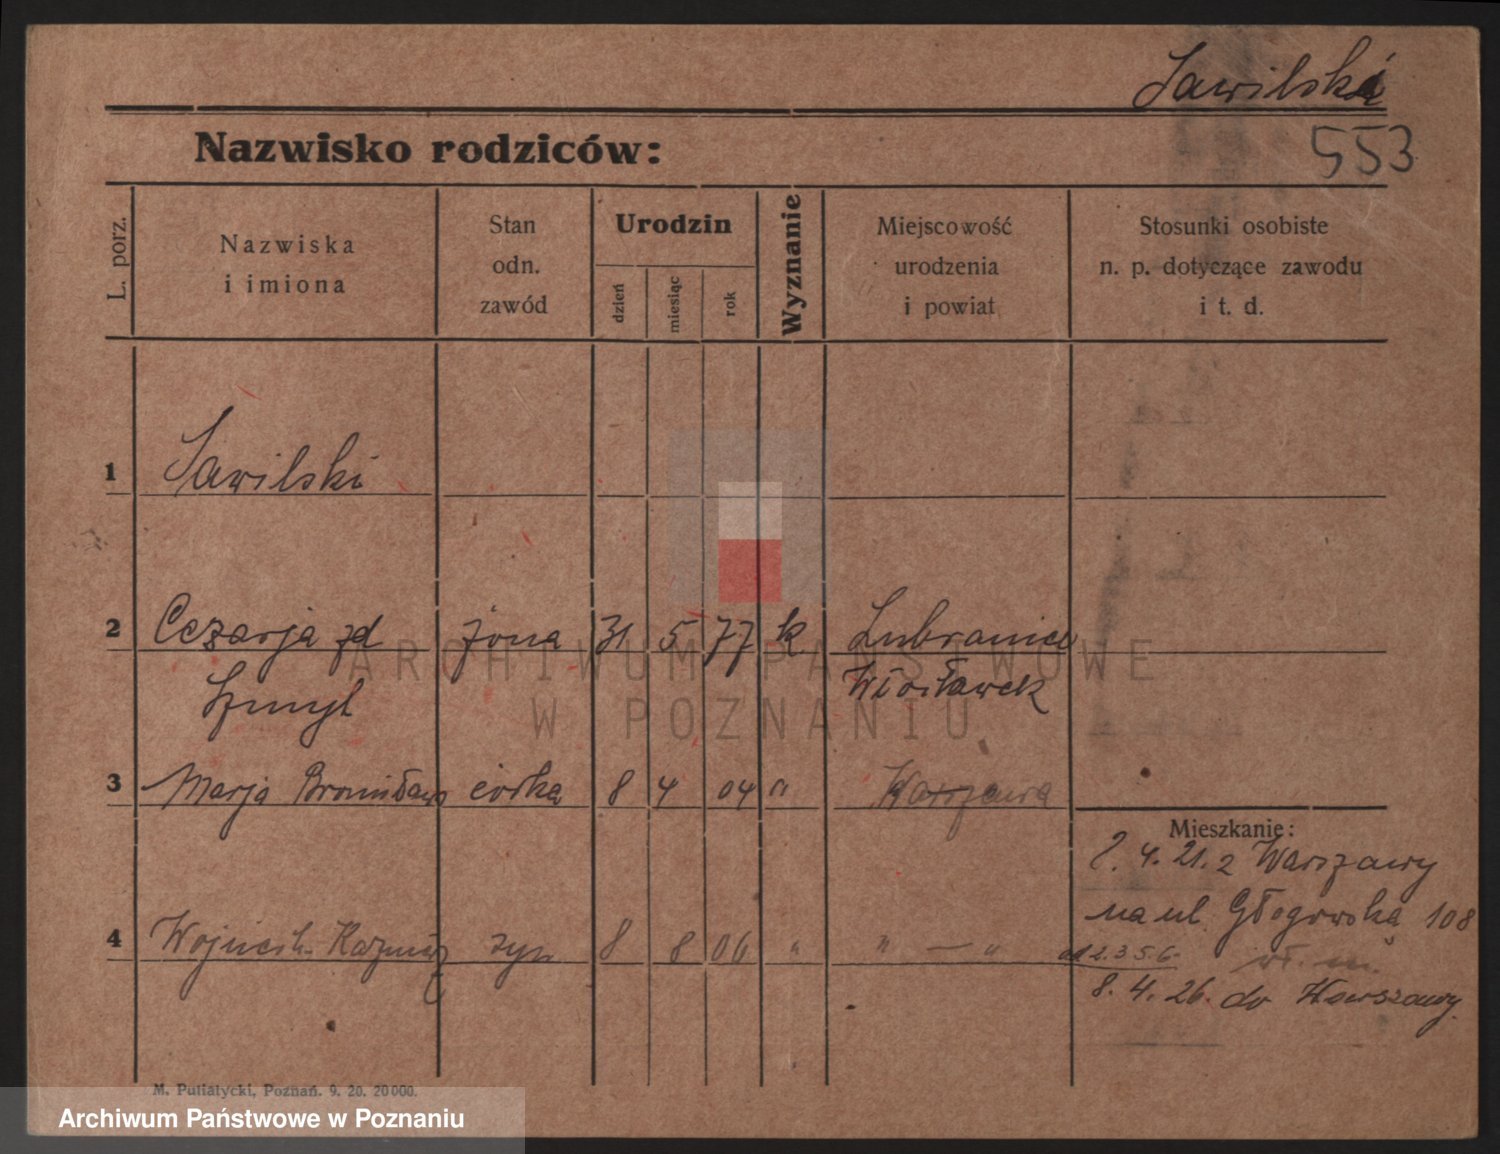 Sawilski
553
Nazwisko rodziców:
L. porz.
Nazwiska
i imiona
Stan
odn.
zawód
Urodzin
dzień
miesiąc
rok
Wyznanie
Miejscowość
urodzenia
i powiat
Stosunki osobiste
n. p. dotyczące zawodu
i t. d.
1 Sawilski
2 Cezarja zd żona 31 5 77 k Lubranice
Szmyt Włocławek
3 Marja Bronisława córka 8 4 04 " Warszawa
Mieszkanie:
2. 4. 21. z Warszawy
na ul. Głogowska 108
4 Wojciech Kazmierz syn 8 8 06 " " — "
8. 4. 26. do Warszawy.
M. Putiatycki, Poznań. 9. 20. 20000.
ARCHIWUM PAŃSTWOWE
W POZNANIU
Archiwum Państwowe w Poznaniu